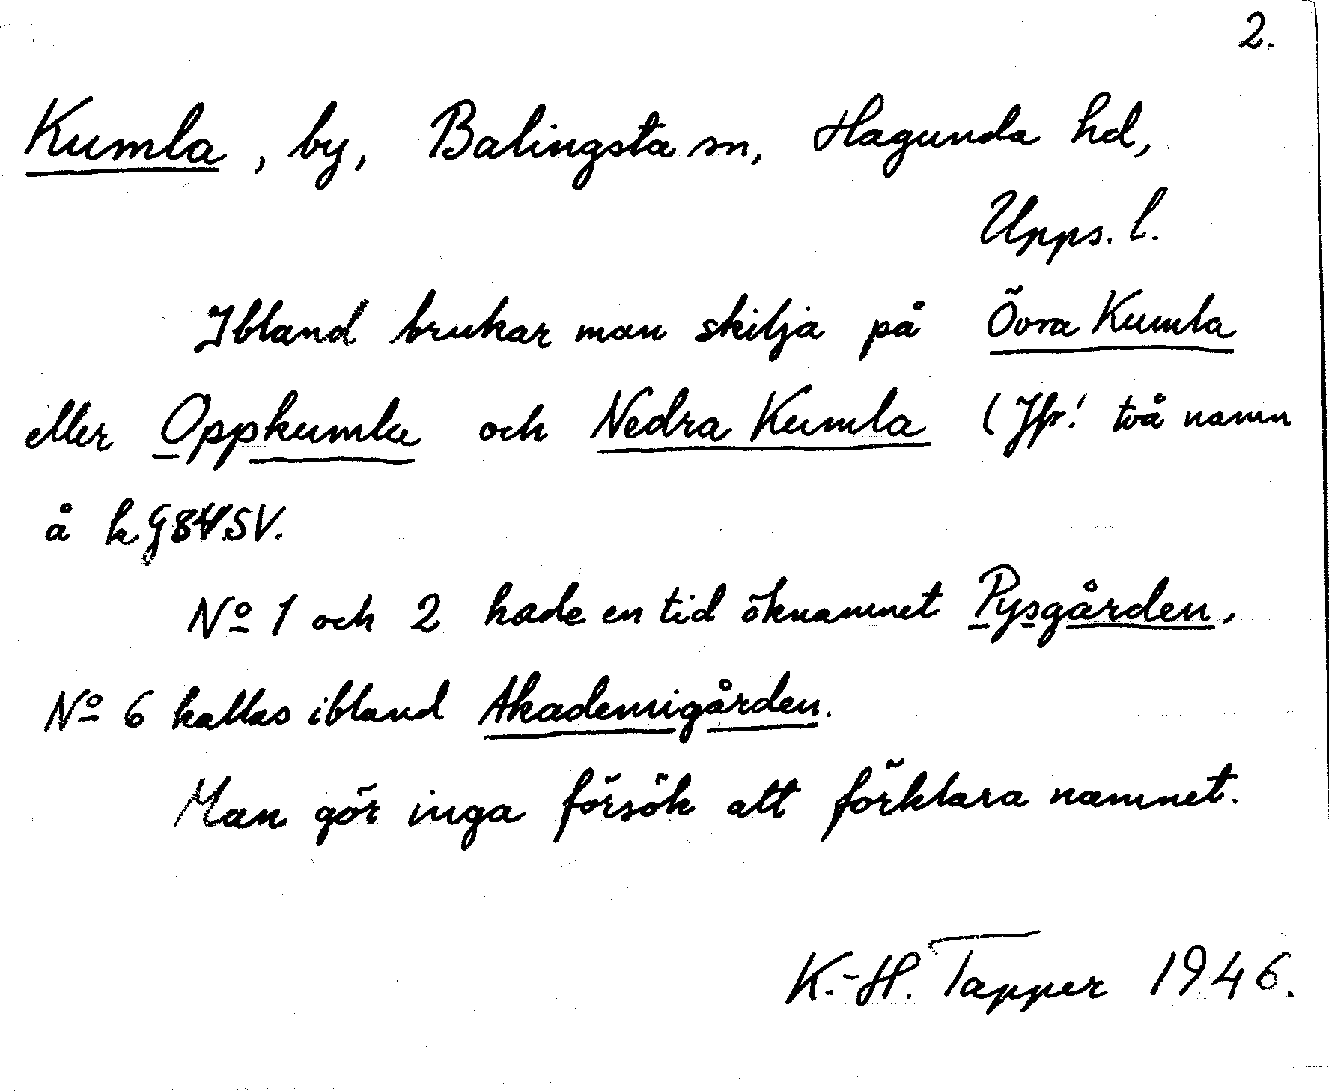 2.
Kumla, by, Balingsta sn, Hagunda hd,
Upps. l.
Ibland brukar man skilja på Övra Kumla
eller Oppkumla och Nedra Kumla (Jfr! två namn
å k. G84SV.
No 1 och 2 hade en tid öknamnet Pysgården,
No 6 kallas ibland Akademigården.
Man gör inga försök att förklara namnet.
K.-H. Tapper 1946.